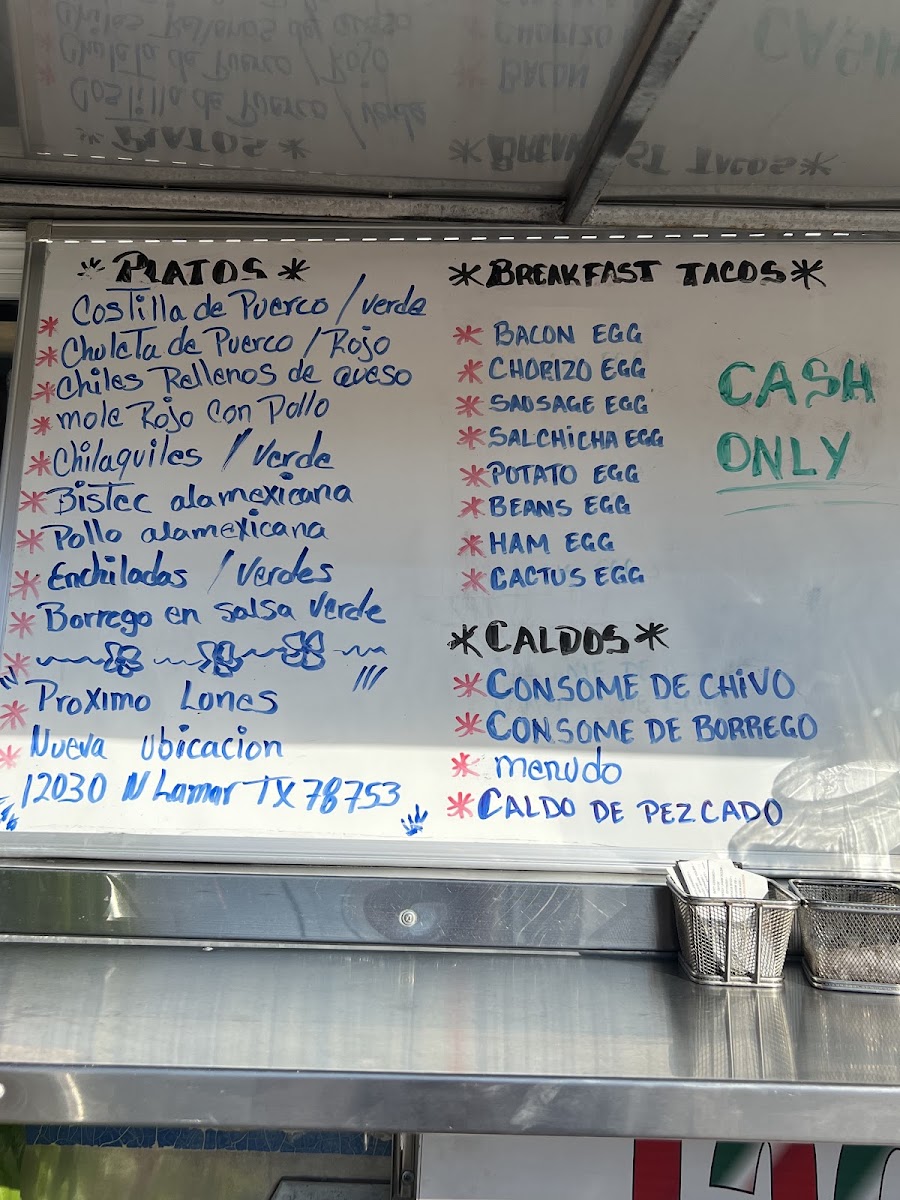 *PLATOS*
* Costilla de Puerco / verde
* Chuleta de Puerco / Rojo
* Chiles Rellenos de aveso
* mole Rojo con Pollo
* Chilaquiles / Verde
* Bistec alamexicana
* Pollo alamexicana
* Enchiladas / Verdes
* Borrego en salsa Verde
* Proximo Lones
* Nueva ubicacion
12030 N Lamar TX 78753
*BREAKFAST TACOS*
* BACON EGG
* CHORIZO EGG
* SAUSAGE EGG
* SALCHiCHA EGG
* POTATO EGG
* BEANS EGG
* HAM EGG
* CACTUS EGG
CASH
ONLY
*CALDOS*
* CONSOME DE CHiVO
* CONSOME DE BORREGO
* menudo
* CALDO DE PEZCADO